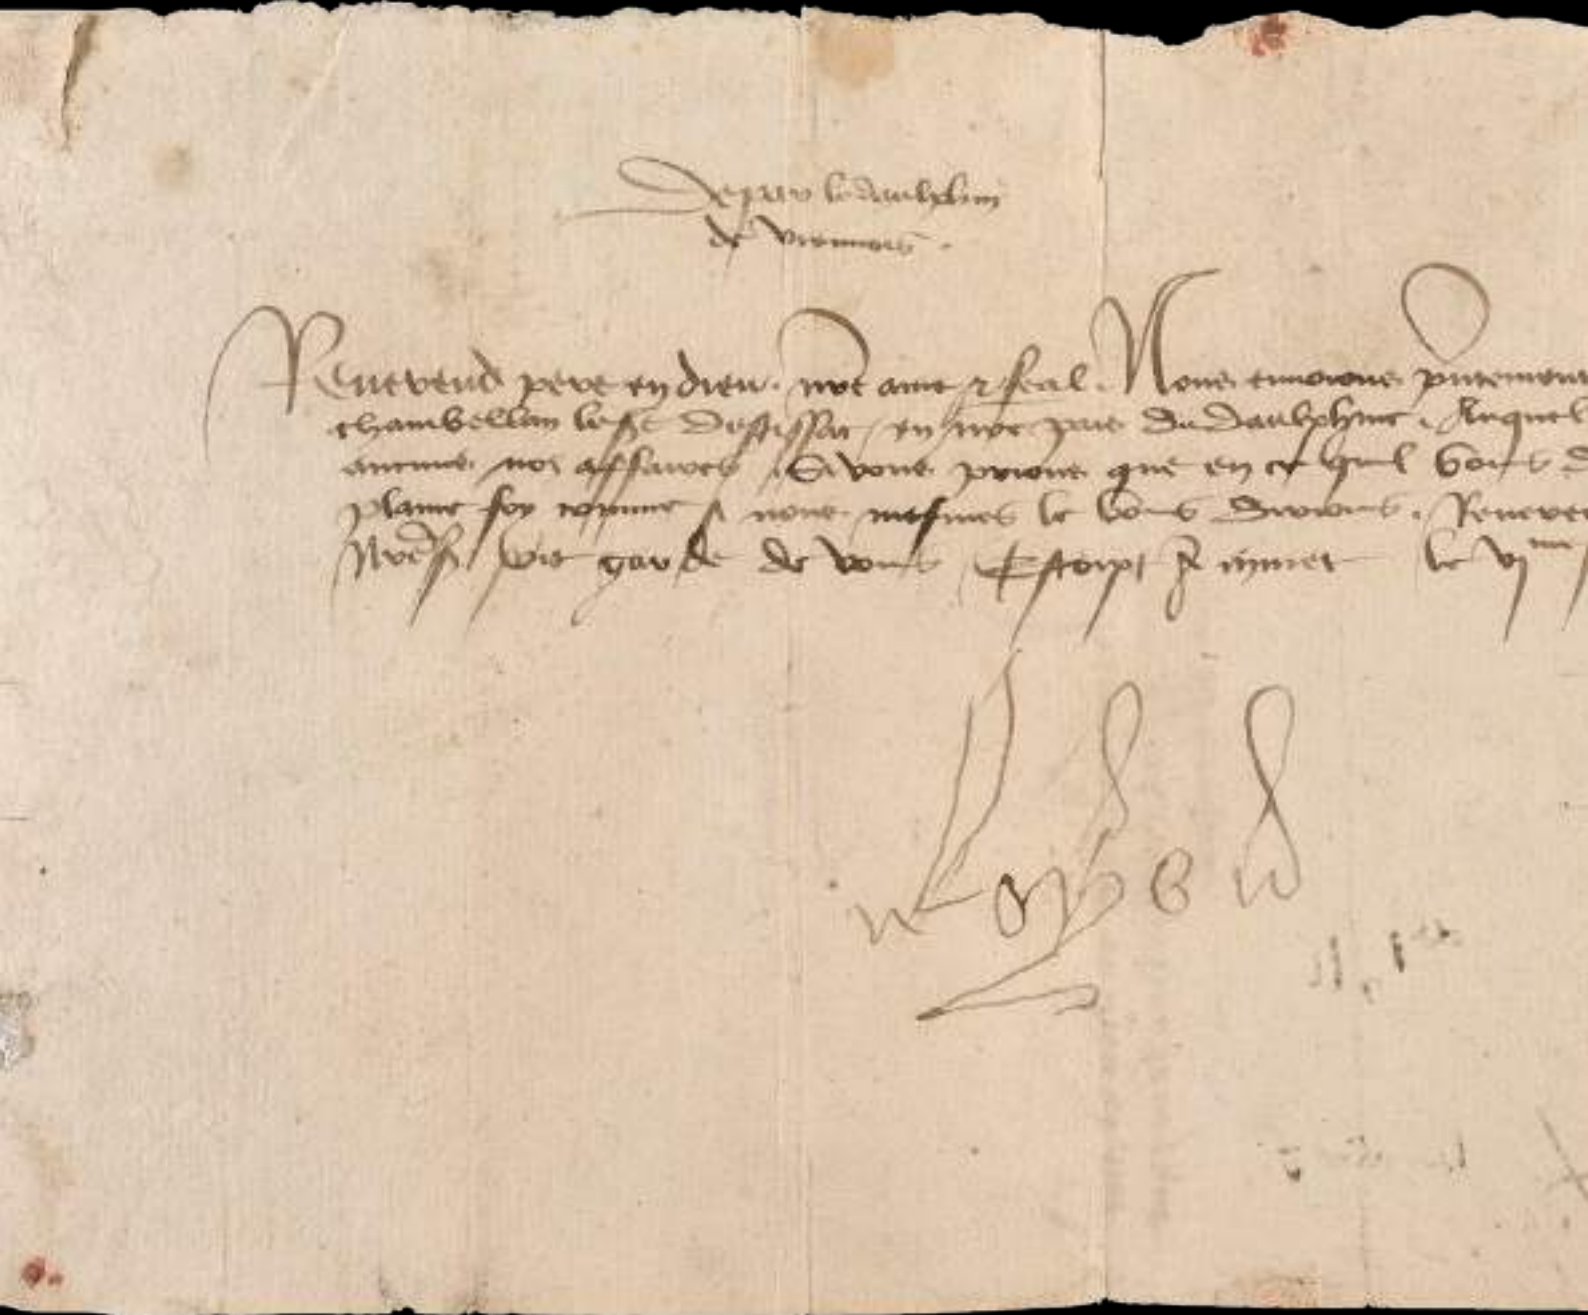 De par le daulphin
de viennois.
Reverend pere en dieu. nre ame & feal. Nous envoions pntement
chambellan le sr Destissac en nre pais du daulphine. Auquel
aucuns nos affaires. Si vous prions que en ce quil vous d
plaine foy comme si nous mesmes le vous disions. Reveren
Nre sr soit garde de vous Escript a le vime
Loys